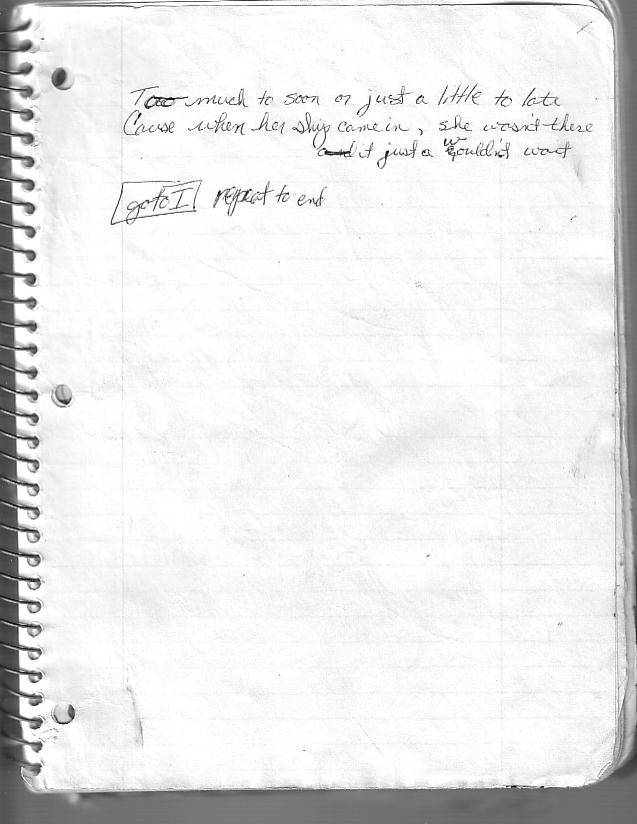 Too much to soon or just a little to late
Cause when her ship came in, she wasn't there
and it just a wouldn't wait
go to I repeat to end